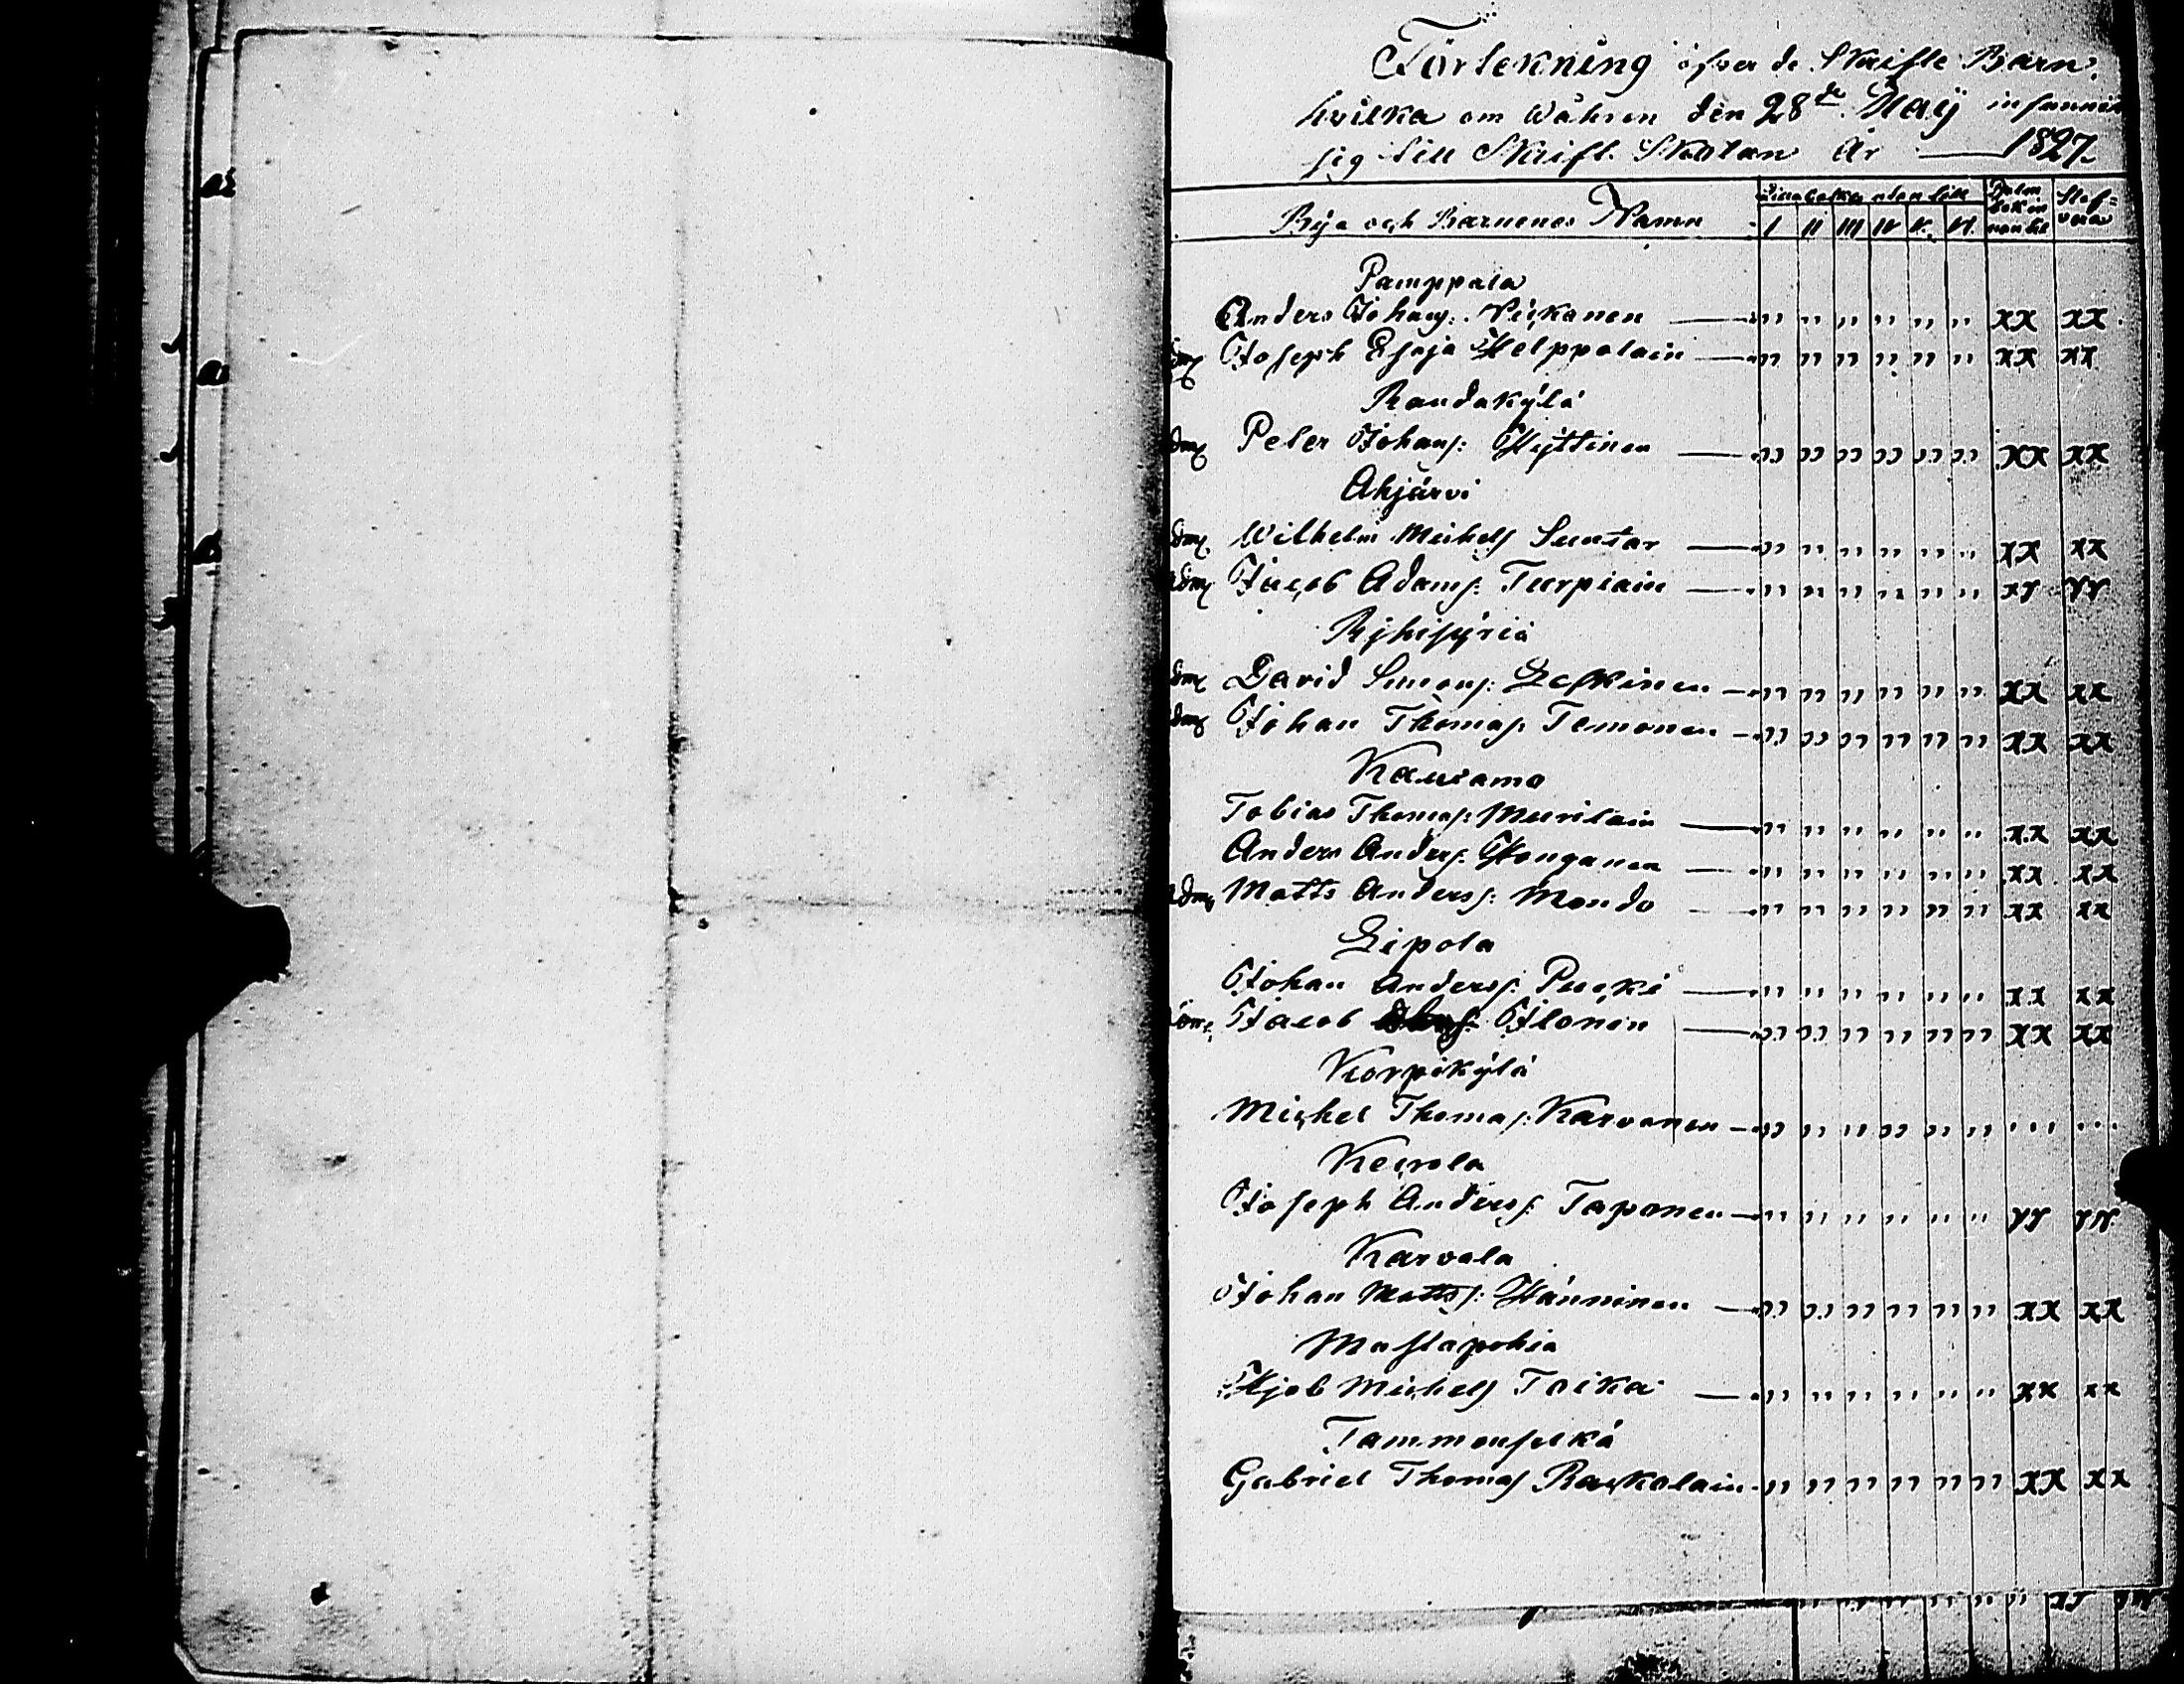 Förtekning öfver de Skrifte Barn,
hvilka om Wåhren den 28de Maij infunnit
sig till Skrift Skolan År — 1827.
Bya och Barnenes Namn I II III IV V. VI.
Pamppala
Anders Johans: Pickanen — " " " " " " xx xx
Joseph Esaja Helppolain — " " " " " " xx xx
Randakylä
Peter Johans: Hyttinen — " " " " " " xx xx
Ahjärvi
Wilhelm Michels Suutar — " " " " " " xx xx
Jacob Adams: Turpiain — " " " " " " xx xx
Ryhisyriä
David Simons: Leskinen — " " " " " " xx xx
Johan Thomas: Temonen — " " " " " " xx xx
Kausamo
Tobias Thomas: Muurilain — " " " " " " xx xx
Anders Anders: Honganen — " " " " " " xx xx
Matts Anders: Mondo — " " " " " " xx xx
Lipola
Johan Anders: Pucki — " " " " " " xx xx
Jacob Ilonen — " " " " " " xx xx
Korpikylä
Michel Thomas: Karvanen — " " " " " " ... ...
Kecrola
Joseph Anders: Taponen — " " " " " " xx xx
Karvala
Johan Matts: Hänninen — " " " " " " xx xx
Mastapohia
Hjob Michels Toika — " " " " " " xx xx
Tammenselkä
Gabriel Thomas Rackolain " " " " " " xx xx